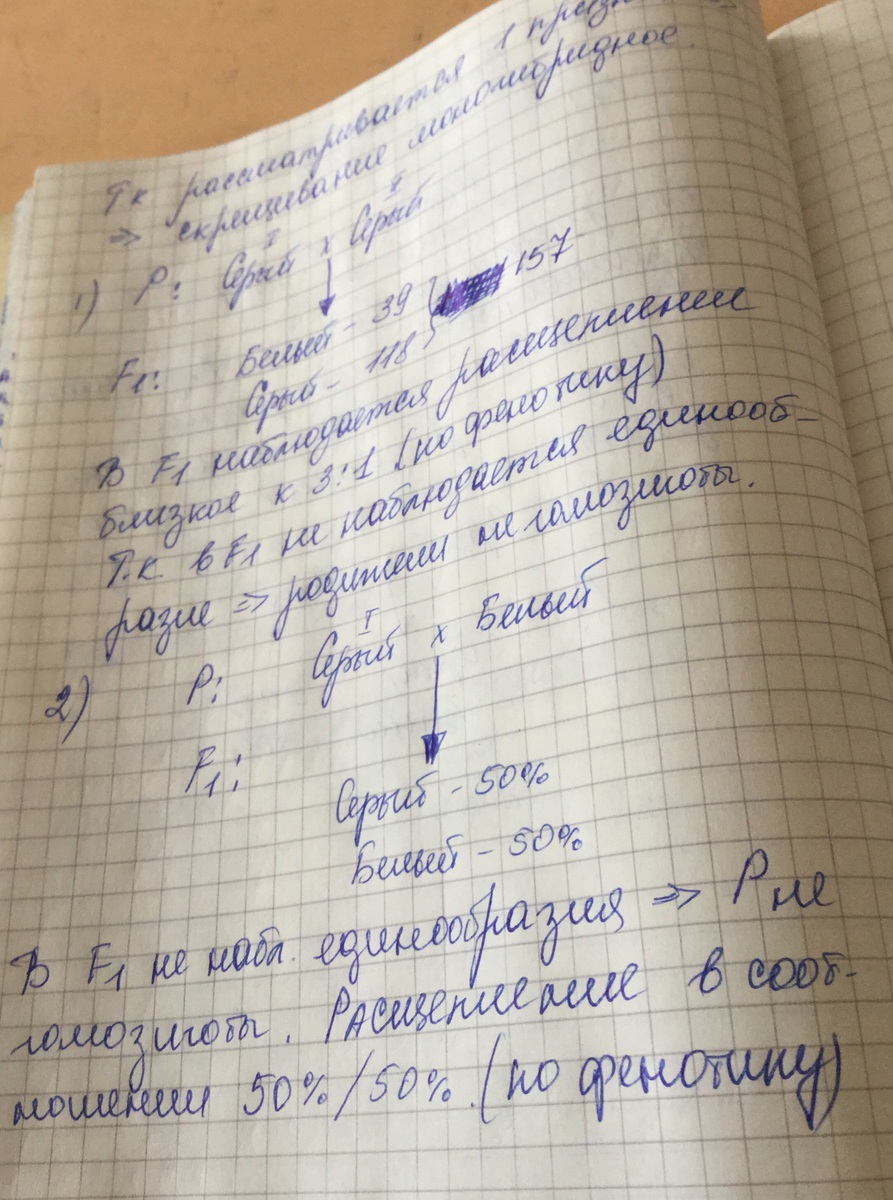 Т.к рассматривается 1
=> скрещивание моногибридное.
1) P: Серый I x Серый II
F1: Белый - 39 } 157
Серый - 118
В F1 наблюдается расщепление
близкое к 3:1 (по фенотипу)
Т.к. в F1 не наблюдается единооб-
разие => родители не гомозиготы.
2) P: Серый I x Белый
F1:
Серый - 50%
Белый - 50%
В F1 не набл. единообразия => P не
гомозиготы. Расщепление в соот-
ношении 50%/50%. (по фенотипу)